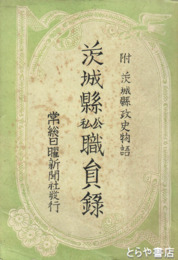 附 茨城縣政史物語
茨城縣公私職員錄
常総日曜新聞社発行
とらや書店